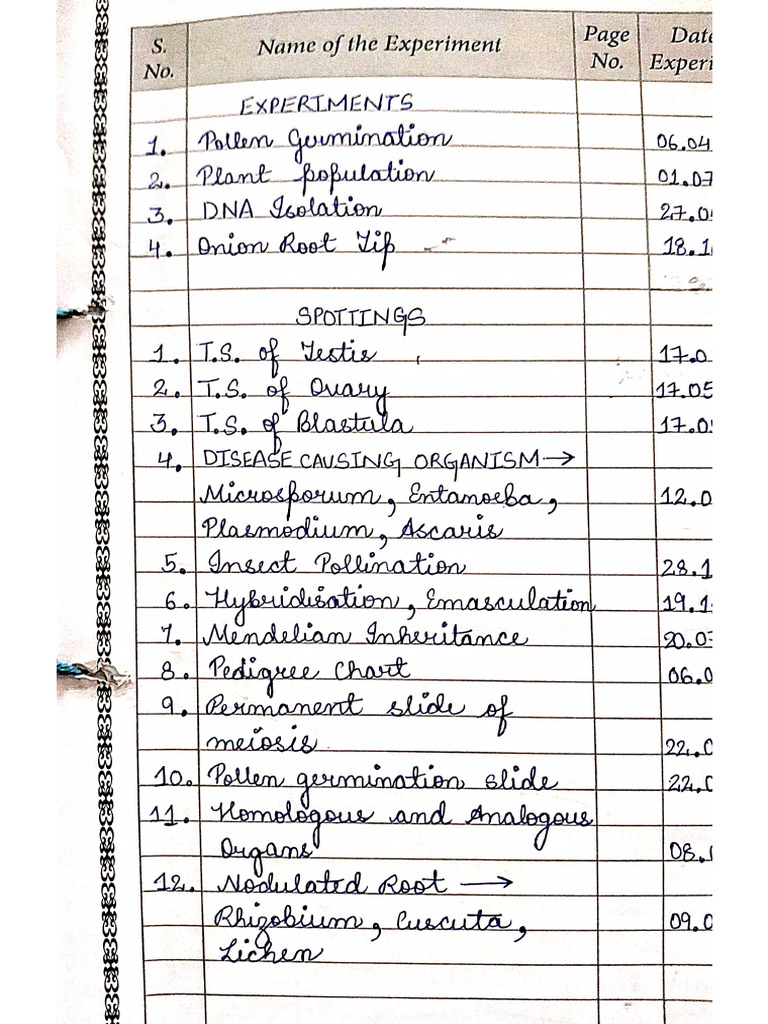 S. No. Name of the Experiment Page No. Date Experi
EXPERIMENTS
1. Pollen Germination 06.04
2. Plant population 01.07
3. DNA Isolation 27.0
4. Onion Root Tip 18.1
SPOTTINGS
1. T.S. of Testis 17.0
2. T.S. of Ovary 17.05
3. T.S. of Blastula 17.0
4. DISEASE CAUSING ORGANISM →
Microsporum, Entamoeba, 12.0
Plasmodium, Ascaris
5. Insect Pollination 28.1
6. Hybridisation, Emasculation 19.1
7. Mendelian Inheritance 20.0
8. Pedigree Chart 06.0
9. Permanent slide of
meiosis 22.0
10. Pollen germination slide 22.0
11. Homologous and Analogous
Organs 08.
12. Nodulated Root →
Rhizobium, Cuscuta, 09.0
Lichen